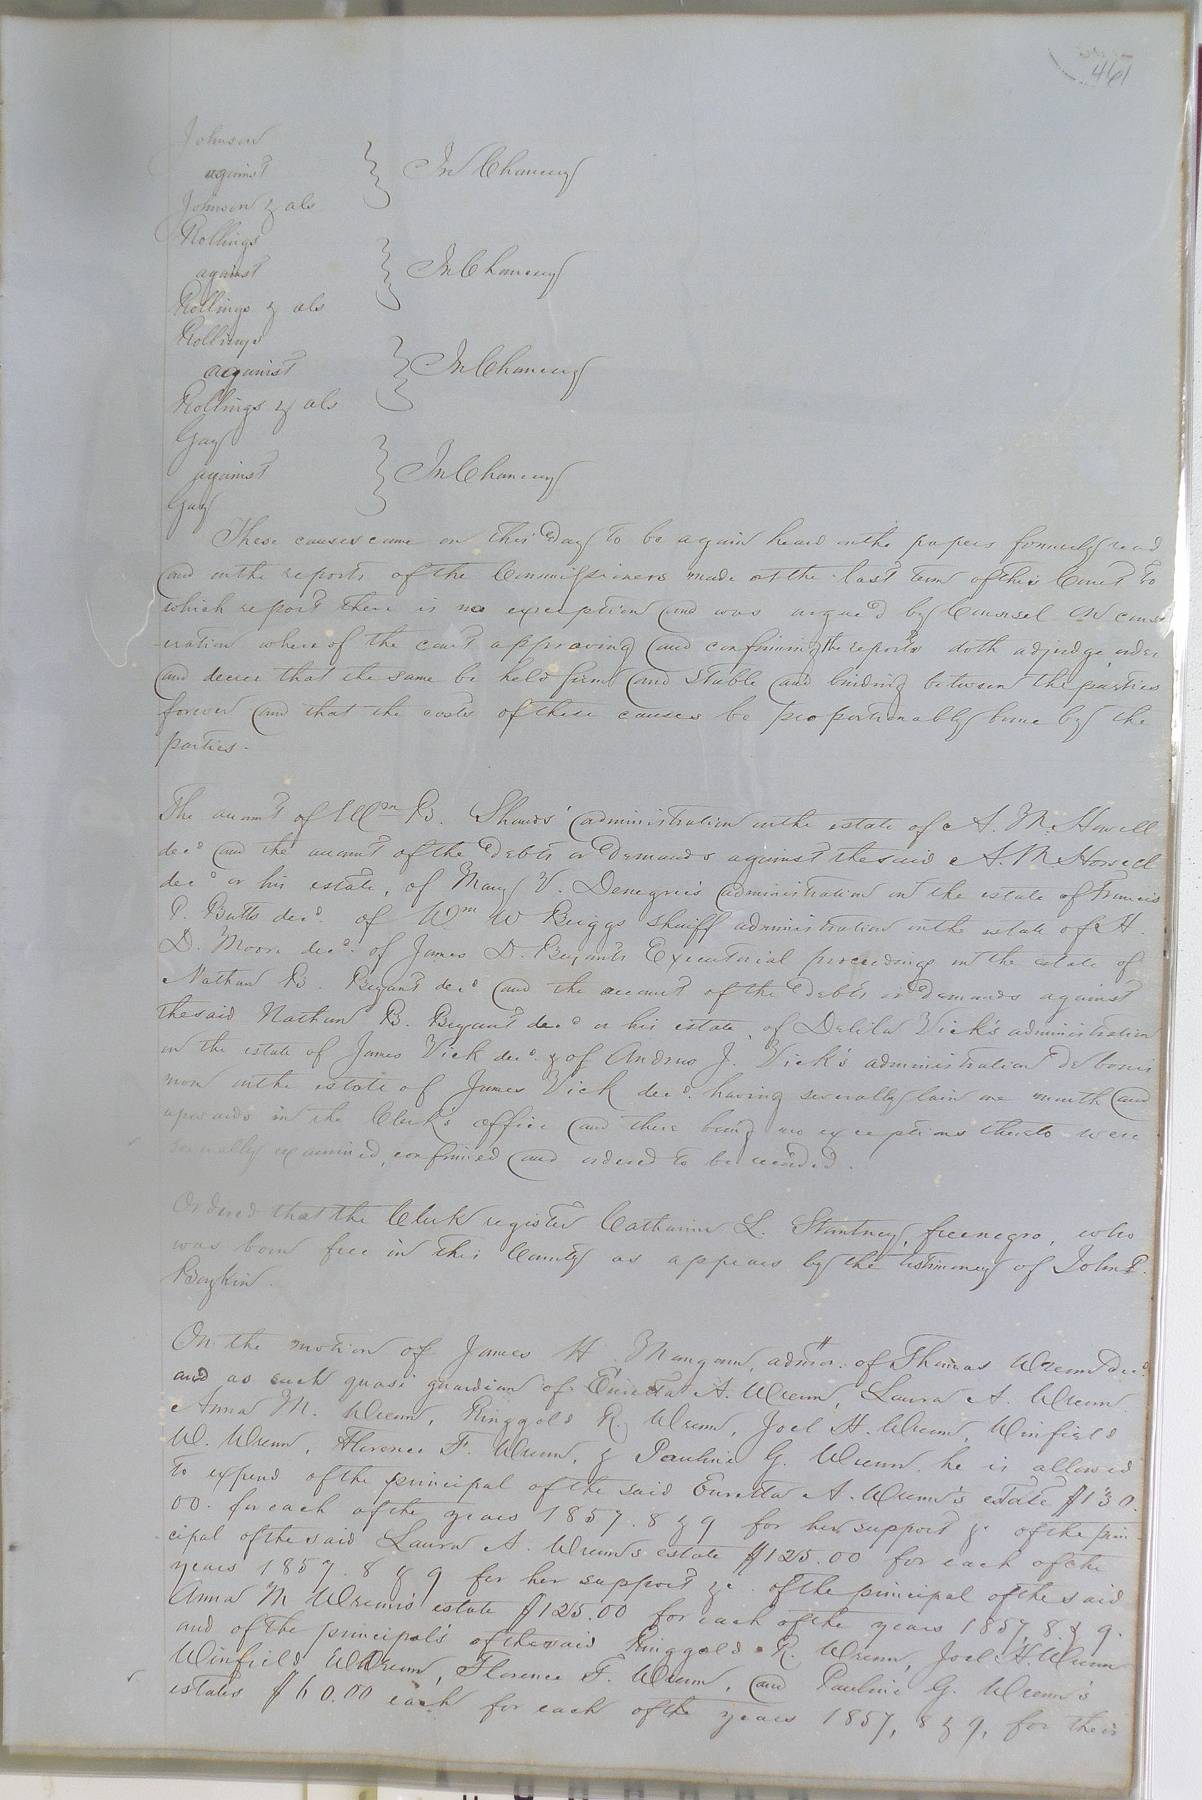 461
Johnson
against } In Chancery
Johnson & als
Rollings
against } In Chancery
Rollings & als
Rollings
against } In Chancery
Rollings & als
Gay
against } In Chancery
Gay
These causes came on this day to be again heard on the papers formerly read
and on the reports of the Commissioners made at the last term of this Court to
which report there is no exception and was argued by Counsel On consi
eration whereof the court approving and confirming the reports doth adjudge, order
and decree that the same be held firm and stable and binding between the parties
forever and that the costs of these causes be proportionably borne by the
parties.
The account of Wm B. Shands' administration on the estate of A. M. Howell
decd and the account of the debts or demands against the said A. M Howell
decd or his estate, of Mary V. Denegrie's administration on the estate of Francis
P. Butts decd. of Wm W Briggs sheriff administration on the estate of H.
D. Moore decd. of James D. Bryant's Executorial proceedings on the estate of
Nathan B. Bryant decd and the account of the debts or demands against
the said Nathan B. Bryant decd or his estate, of Delila Vick's administration
on the estate of James Vick decd. & of Andrew J. Vick's administration de bonis
non on the estate of James Vick decd. having severally lain one month and
upwards in the Clerk's office and there being no exceptions thereto were
severally examined, confirmed and ordered to be recorded.
Ordered that the Clerk register Catharine L. Stantney, free negro, who
was born free in this County as appears by the testimony of John P.
Boykin.
On the motion of James H Mangam, admor. of Thomas Wrenn decd.
and as such quasi guardian of Euretta A. Wrenn, Laura A. Wrenn
Anna M. Wrenn, Ringgold R. Wrenn, Joel H. Wrenn, Winfield
W. Wrenn, Florence F. Wrenn, & Pauline G. Wrenn. he is allowed
to expend of the principal of the said Euretta A. Wrenn's estate $130.
00. for each of the years 1857. 8 & 9 for her support &c of the prin-
cipal of the said Laura A. Wrenn's estate $125.00 for each of the
years 1857. 8 & 9 for her support &c. of the principal of the said
Anna M Wrenn's estate $125.00 for each of the years 1857, 8 & 9.
and of the principals of the said Ringgold R. Wrenn, Joel H. Wrenn
Winfield W Wrenn, Florence F. Wrenn, and Pauline G. Wrenn's
estates $60.00 each for each of the years 1857, 8 & 9, for their